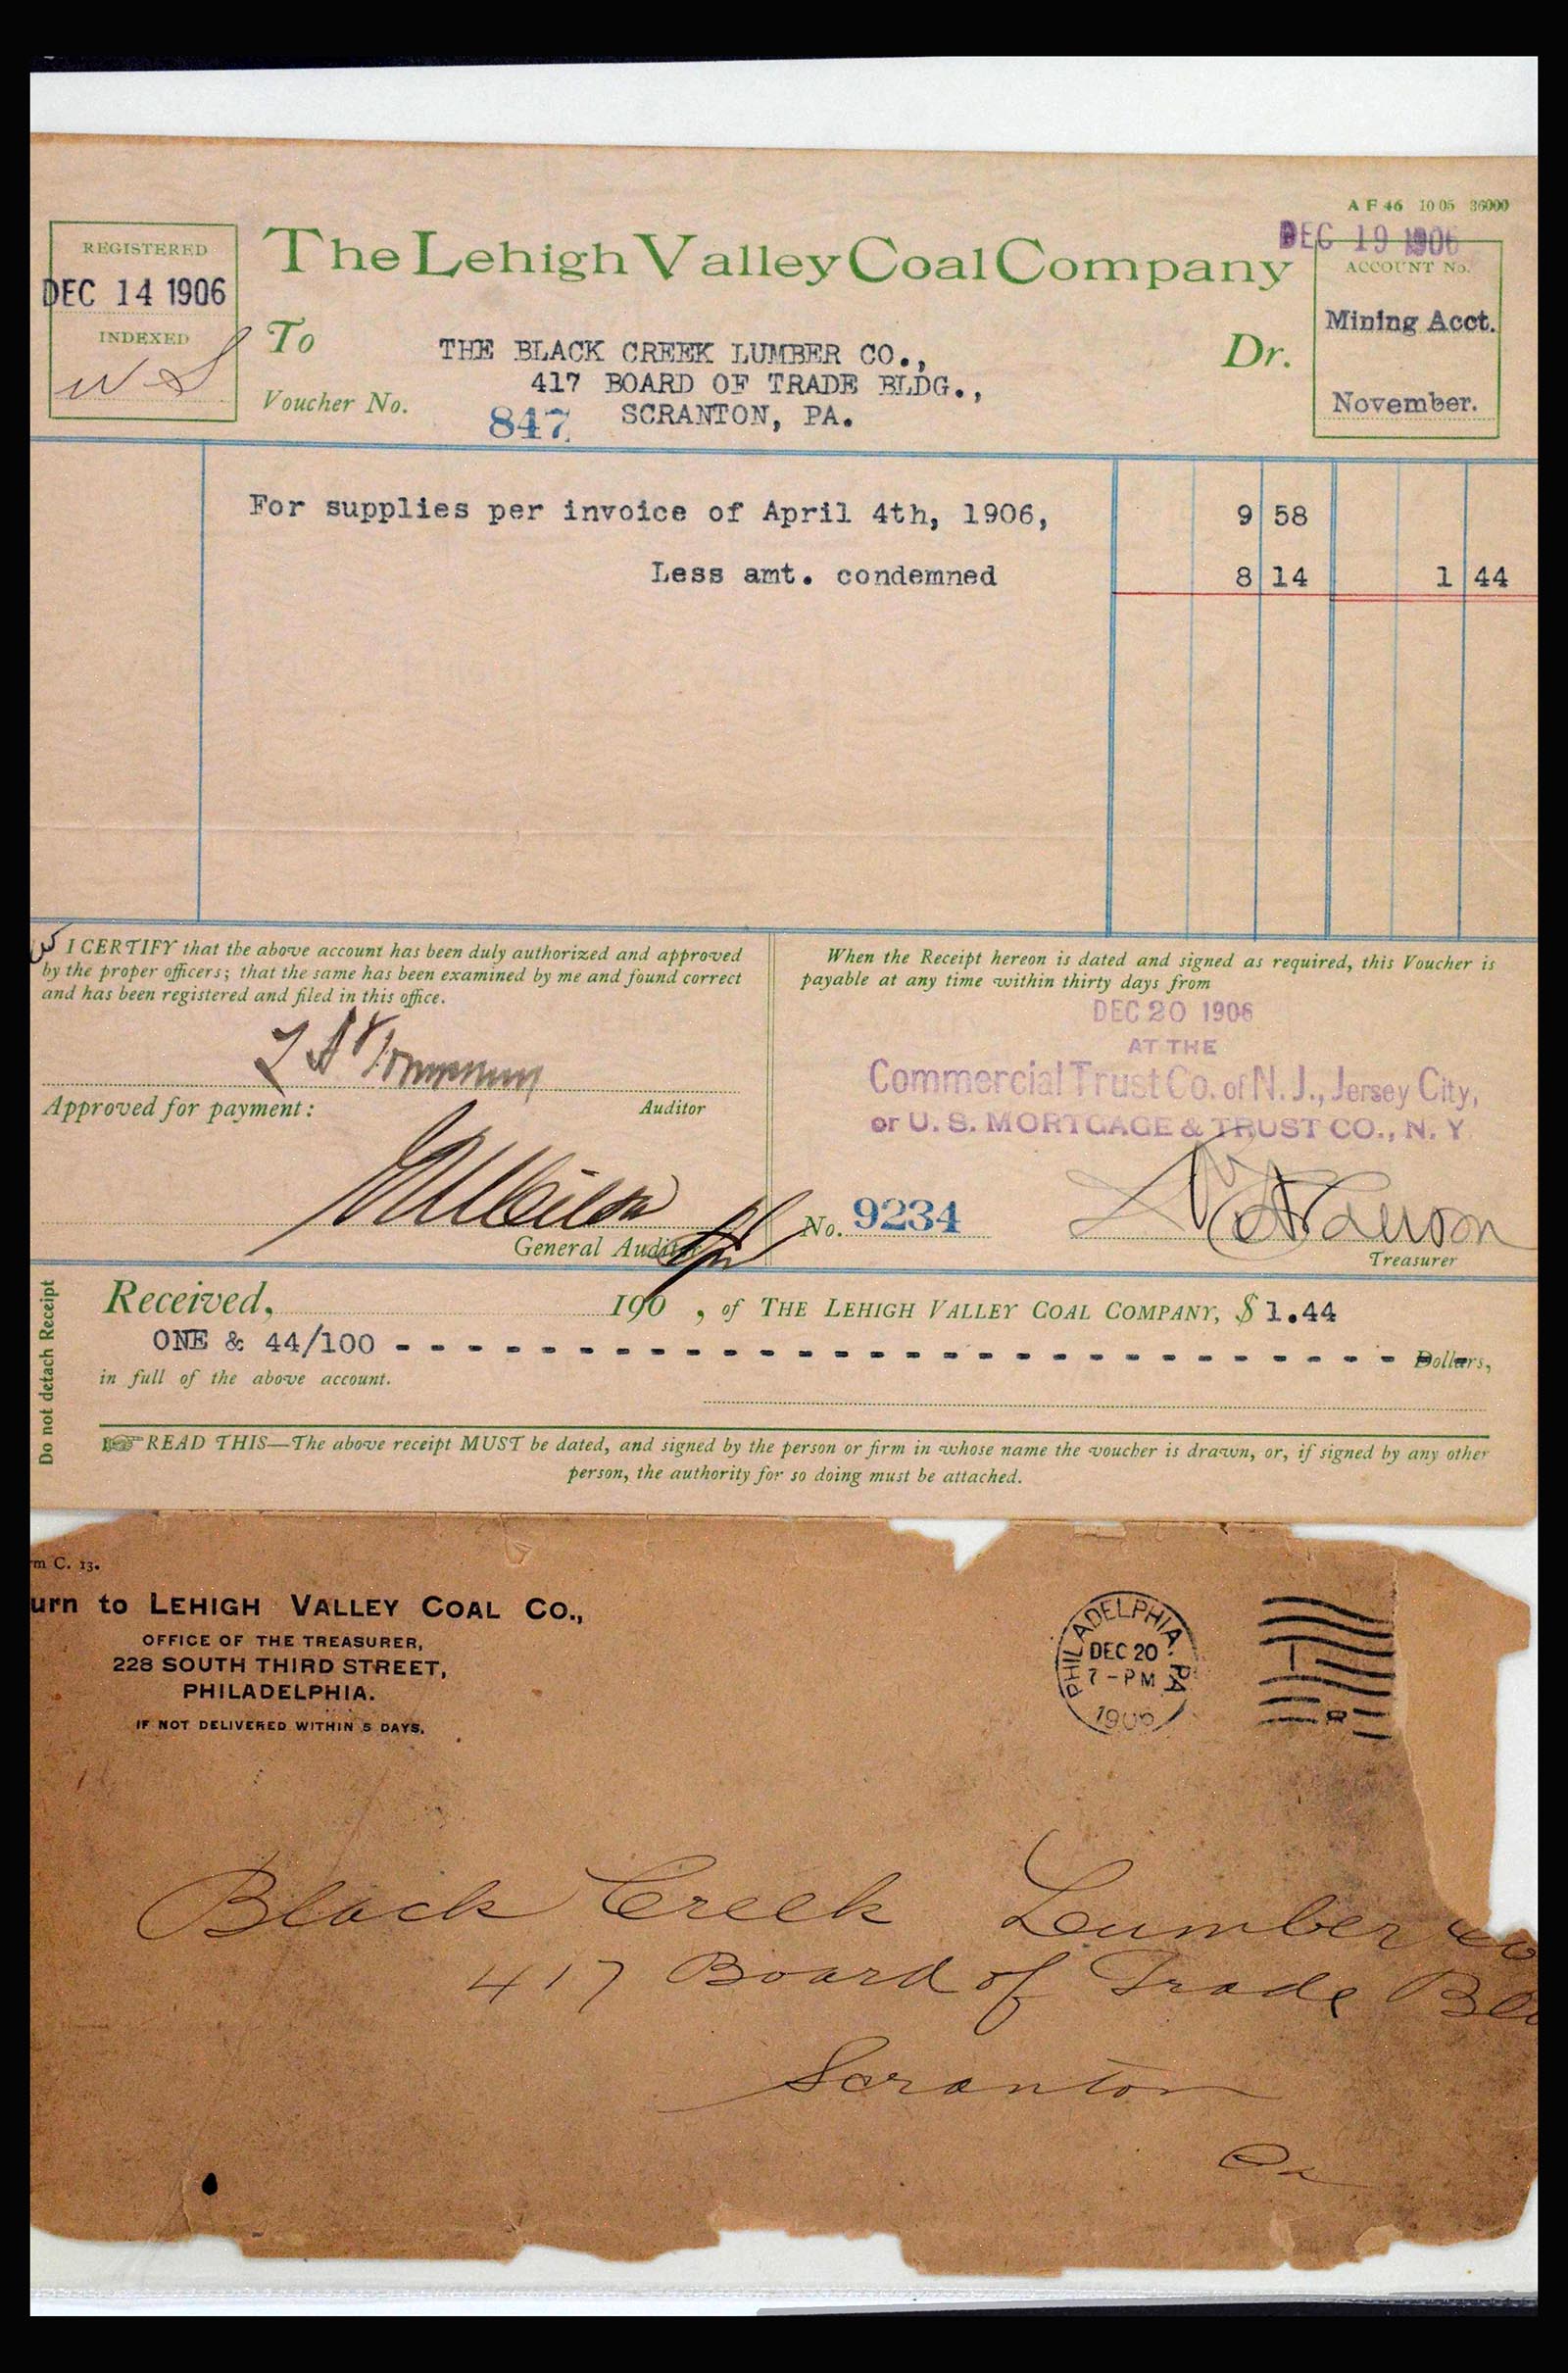 A F 46 10 05 36000
DEC 19 1906
REGISTERED
DEC 14 1906
INDEXED
W S
The Lehigh Valley Coal Company
ACCOUNT No.
Mining Acct.
November.
To
THE BLACK CREEK LUMBER CO.,
Dr.
417 BOARD OF TRADE BLDG.,
Voucher No.
847
SCRANTON, PA.
For supplies per invoice of April 4th, 1906,
9 58
Less amt. condemned
8 14
1 44
I CERTIFY that the above account has been duly authorized and approved
by the proper officers; that the same has been examined by me and found correct
and has been registered and filed in this office.
Auditor
Approved for payment:
General Auditor
When the Receipt hereon is dated and signed as required, this Voucher is
payable at any time within thirty days from
DEC 20 1906
AT THE
Commercial Trust Co. of N. J., Jersey City,
or U. S. MORTGAGE & TRUST CO., N. Y.
No. 9234
Treasurer
Do not detach Receipt
Received, 190 , of THE LEHIGH VALLEY COAL COMPANY, $ 1.44
ONE & 44/100 - - - - - - - - - - - - - - - - - - - - - - - - - - - - - - Dollars,
in full of the above account.
READ THIS—The above receipt MUST be dated, and signed by the person or firm in whose name the voucher is drawn, or, if signed by any other
person, the authority for so doing must be attached.
m C. 13.
urn to LEHIGH VALLEY COAL CO.,
OFFICE OF THE TREASURER,
228 SOUTH THIRD STREET,
PHILADELPHIA.
IF NOT DELIVERED WITHIN 5 DAYS.
PHILADELPHIA, PA
DEC 20
7-PM
1906
Black Creek Lumber Co
417 Board of Trade Bld
Scranton
Pa